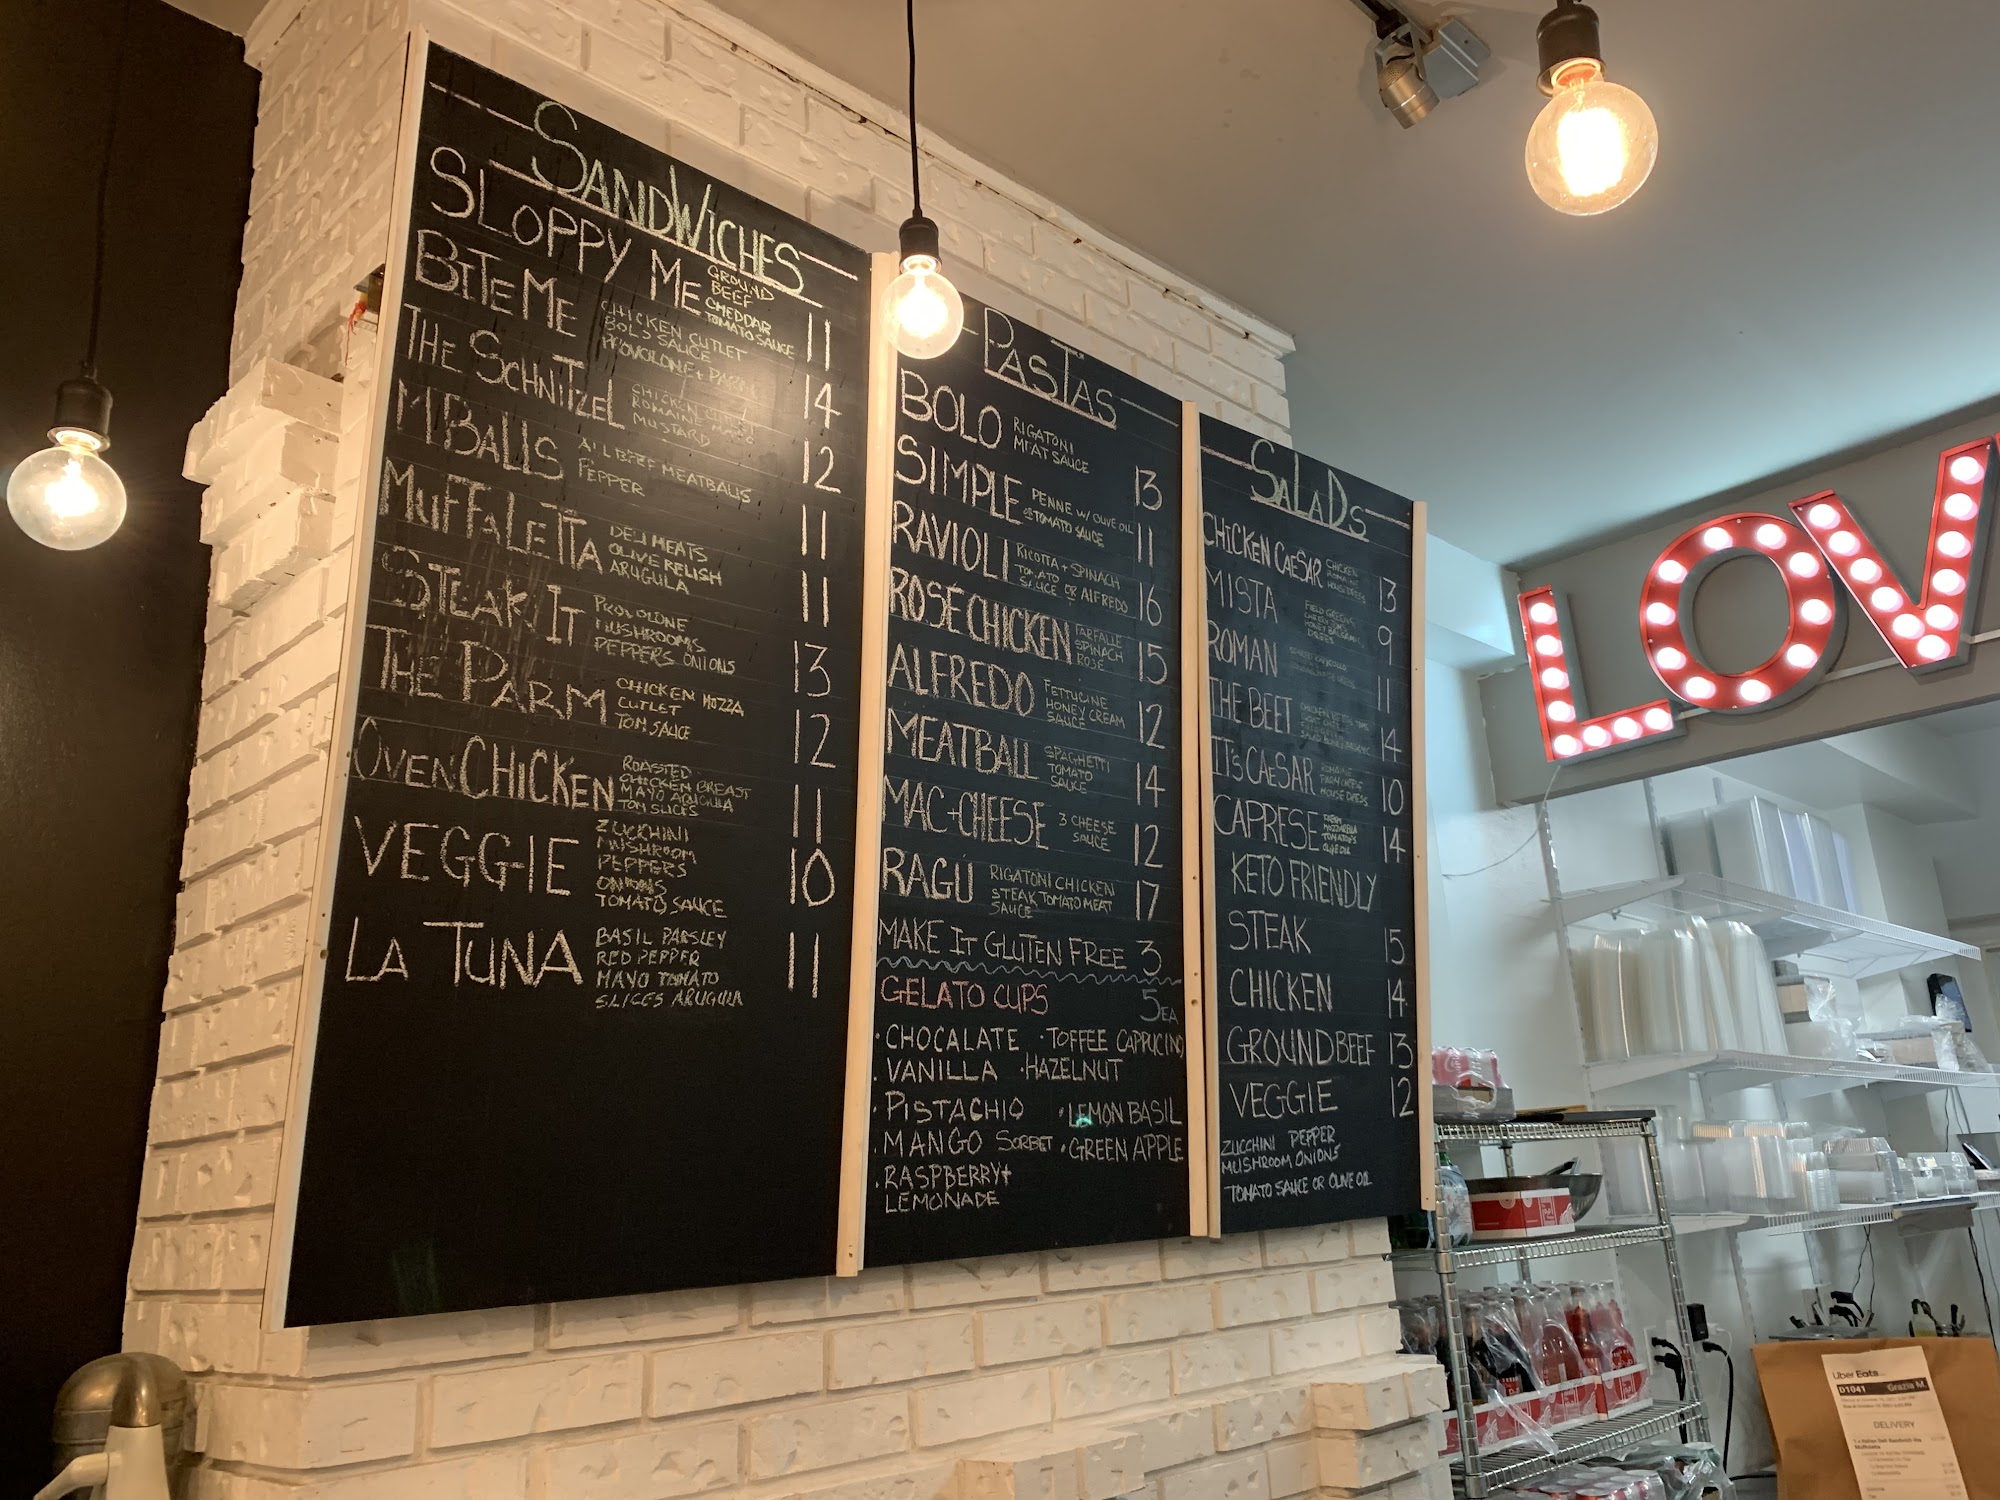 SANDWICHES
SLOPPY ME GROUND BEEF CHEDDAR TOMATO SAUCE 11
BITE ME CHICKEN CUTLET BOLO SAUCE PROVOLONE + PARM 14
THE SCHNITZEL CHICKEN CUTLET ROMAINE MAYO MUSTARD 12
M BALLS ALL BEEF MEATBALLS PEPPER 11
MUFFALETTA DELI MEATS OLIVE RELISH ARUGULA 11
STEAK IT PROVOLONE MUSHROOMS PEPPERS ONIONS 13
THE PARM CHICKEN MOZZA CUTLET TOM SAUCE 12
OVEN CHICKEN ROASTED CHICKEN BREAST MAYO ARUGULA TOM SLICES 11
VEGGIE ZUCCHINI MUSHROOM PEPPERS ONIONS TOMATO SAUCE 10
LA TUNA BASIL PARSLEY RED PEPPER MAYO TOMATO SLICES ARUGULA 11
PASTAS
BOLO RIGATONI MEAT SAUCE 13
SIMPLE PENNE W/ OLIVE OIL OR TOMATO SAUCE 11
RAVIOLI RICOTTA + SPINACH TOMATO SAUCE OR ALFREDO 16
ROSÉ CHICKEN FARFALLE SPINACH ROSÉ 15
ALFREDO FETTUCINE HONEY CREAM SAUCE 12
MEATBALL SPAGHETTI TOMATO SAUCE 14
MAC+CHEESE 3 CHEESE SAUCE 12
RAGÚ RIGATONI CHICKEN STEAK TOMATO MEAT SAUCE 17
MAKE IT GLUTEN FREE 3
GELATO CUPS 5 EA
· CHOCALATE · TOFFEE CAPPUCINO
· VANILLA · HAZELNUT
· PISTACHIO · LEMON BASIL
· MANGO SORBET · GREEN APPLE
· RASPBERRY+
LEMONADE
SALADS
CHICKEN CAESAR CHICKEN ROMAINE HOUSE DRESS 13
MISTA FIELD GREENS HONEY BALSAMIC DRESS 9
ROMAN 11
THE BEET 14
IT'S CAESAR ROMAINE HOUSE DRESS 10
CAPRESE FRESH MOZZARELLA TOMATOES OLIVE OIL 14
KETO FRIENDLY
STEAK 15
CHICKEN 14
GROUND BEEF 13
VEGGIE 12
ZUCCHINI PEPPER
MUSHROOM ONIONS
TOMATO SAUCE OR OLIVE OIL
LOV
Uber Eats
D1041 Grazia M.
DELIVERY